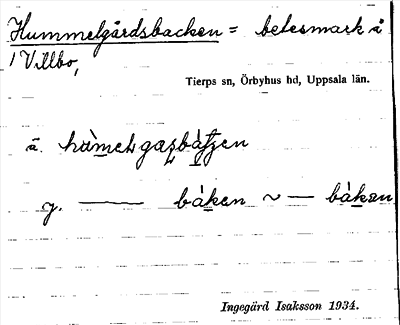 Hummelgärdsbacken = betesmark å
/ Villbo,
Tierps sn, Örbyhus hd, Uppsala län.
ä. hàmelsgaʐbàʄen
y. —— bàken ~ — bàken
Ingegärd Isaksson 1934.